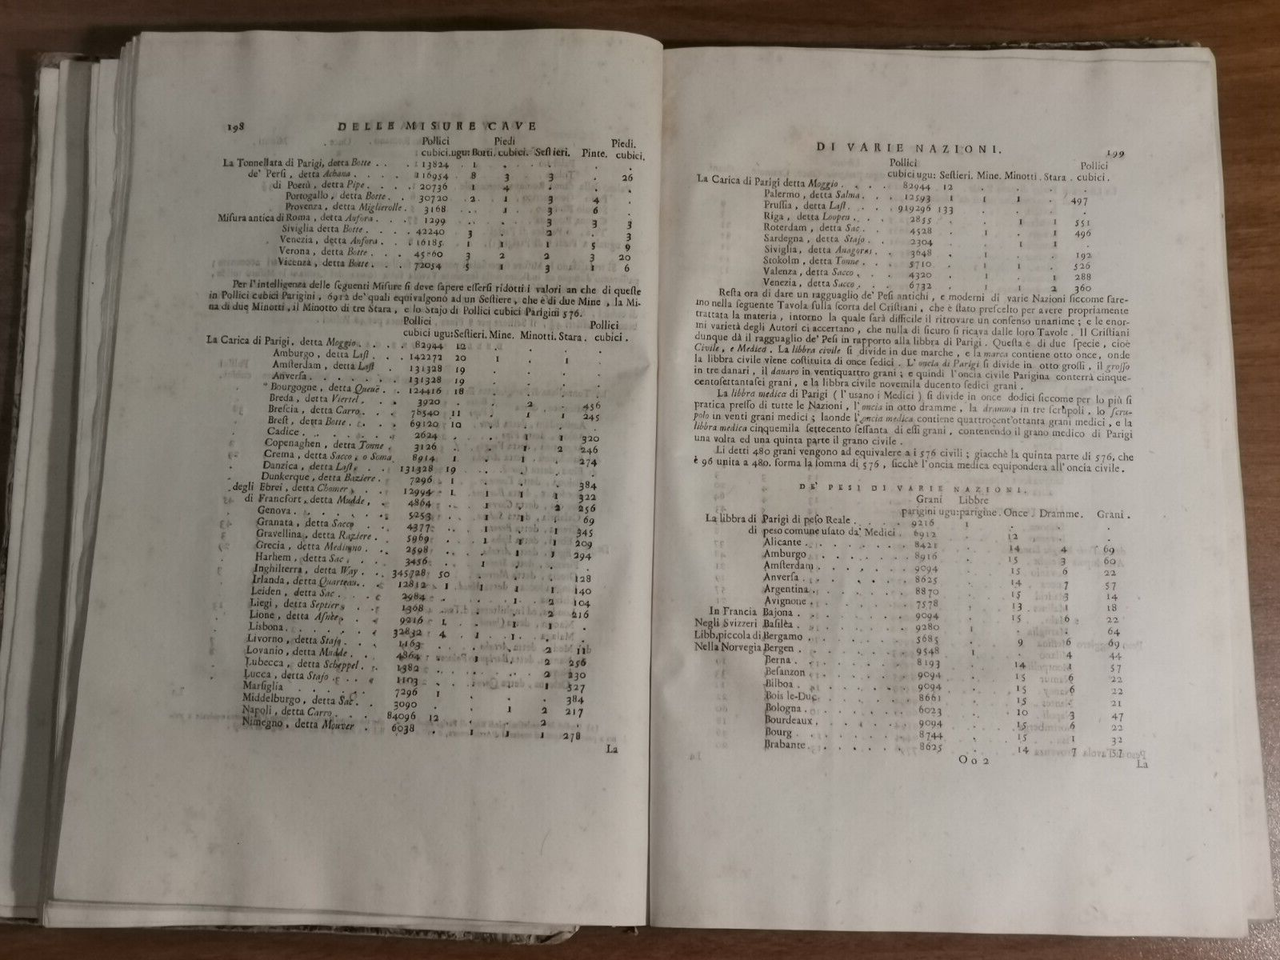 198 DELLE MISURE CAVE
Pollici Piedi Piedi.
cubici. ugu: Botti. cubici. Seſtieri. Pinte. cubici.
La Tonnellata di Parigi, detta Botte . . . 13824 1 . . . .
de' Perſi, detta Achana . . . . 16954 8 3 3 . 26
di Poerù, detta Pipe . . . . 20736 1 4 . . .
Portogallo, detta Botte . . 30720 2 1 3 4 .
Provenza, detta Miglierolle . 3168 . 1 3 6 .
Miſura antica di Roma, detta Anfora . . . 1299 . . 3 3 3
Siviglia detta Botte . . . 42240 3 . 2 . 3
Venezia, detta Anfora . . . 16185 1 1 1 5 9
Verona, detta Botte . . . 45-60 3 2 2 3 20
Vicenza, detta Botte . . . 72054 5 1 3 1 6
Per l'intelligenza delle ſeguenti Miſure ſi deve ſapere eſſerſi ridotti i valori an che di queſte
in Pollici cubici Parigini, 6912 de' quali equivalgono ad un Seſtiere, che è di due Mine, la Mi-
na di due Minotti, il Minotto di tre Stara, e lo Stajo di Pollici cubici Parigini 576.
Pollici Pollici
cubici ugu: Seſtieri. Mine. Minotti. Stara. cubici.
La Carica di Parigi, detta Moggio . . 82944 12 . . . .
Amburgo, detta Laſt . . 142272 20 1 . 1 .
Amſterdam, detta Laſt 131328 19
Anverſa . . . . . . 131328 19
Bourgogne, detta Queuë . . 124416 18
Breda, detta Viertel . . 3920 . . 2 . 456
Breſcia, detta Carro . . 78540 11 . 1 1 245
Breſt, detta Botte . . 69120 10
Cadice . . . . 2624 . . 1 1 320
Copenaghen, detta Tonne . 3126 . . 1 2 246
Crema, detta Sacco, o Soma 8914 1 . 1 . 274
Danzica, detta Laſt . . 131328 19
Dunkerque, detta Baziere . . 7296 1 . . . 384
degli Ebrei, detta Chomer
di Francfort, detta Mudde . 4864
Genova . . .
Granata, detta Sacco 4377
Gravellina, detta Raziere 5969
Grecia, detta Medimno . . 2598
Harlem, detta Sac . 3456
Inghilterra, detta Way . . 345728 50
Irlanda, detta Quarteau . . 12812
Leiden, detta Sac . . . 2984
Liegi, detta Septier
Lione, detta Aſnée . . 9216
Lisbona . . .
Livorno, detta Stajo . .
Lovanio, detta Mudde . . 4864
Lubecca, detta Scheppel . .
Lucca, detta Stajo . . 1103
Marſiglia . . . 7296 1 . . . 384
Middelburgo, detta Sac . 3090
Napoli, detta Carro . . . 84096 12
Nimegno, detta Mouver . 6038 . 1 1 1 278
La
DI VARIE NAZIONI. 199
Pollici Pollici
cubici ugu: Seſtieri. Mine. Minotti. Stara. cubici.
La Carica di Parigi detta Moggio . . . 82944 12 . . . .
Palermo, detta Salma . . 12593 1 1 1 . 497
Pruſſia, detta Laſt . . . 919296 133 . . . .
Riga, detta Loopen . . . 2855 . . 1 1 551
Roterdam, detta Sac . . . 4528 . 1 . 1 496
Sardegna, detta Stajo . . 2304 . . 1 1 .
Siviglia, detta Anagoras . 3648 . 1 . . 192
Stokolm, detta Tonne . . 5710 . 1 1 . 526
Valenza, detta Sacco . . . 4320 . 1 . 1 288
Venezia, detta Sacco . . . 6732 . 1 1 2 360
Reſta ora di dare un ragguaglio de' Peſi antichi, e moderni di varie Nazioni ſiccome fare-
mo nella ſeguente Tavola ſulla ſcorta del Criſtiani, che è ſtato preſcelto per avere propriamente
trattata la materia, intorno la quale ſarà difficile il ritrovare un conſenſo unanime; e le enor-
mi varietà degli Autori ci accertano, che nulla di ſicuro ſi ricava dalle loro Tavole. Il Criſtiani
dunque dà il ragguaglio de' Peſi in rapporto alla libbra di Parigi. Queſta è di due ſpecie, cioè
Civile, e Medica. La libbra civile ſi divide in due marche, e la marca contiene otto once, onde
la libbra civile viene coſtituita di once ſedici. L'oncia di Parigi ſi divide in otto groſſi, il groſſo
in tre danari, il danaro in ventiquattro grani; e quindi l'oncia civile Parigina conterrà cinque-
centoſettantaſei grani, e la libbra civile novemila ducento ſedici grani.
La libbra medica di Parigi (l'uſano i Medici) ſi divide in once dodici ſiccome per lo più ſi
pratica preſſo di tutte le Nazioni, l'oncia in otto dramme, la dramma in tre ſcrupoli, lo ſcru-
polo in venti grani medici; laonde l'oncia medica contiene quattrocent'ottanta grani medici, e la
libbra medica cinquemila ſettecento ſeſſanta di eſſi grani, contenendo il grano medico di Parigi
una volta ed una quinta parte il grano civile.
Li detti 480 grani vengono ad equivalere a i 576 civili; giacchè la quinta parte di 576, che
è 96 unita a 480. forma la ſomma di 576, ſicchè l'oncia medica equiponderà all'oncia civile.
DE' PESI DI VARIE NAZIONI.
Grani Libbre
parigini ugu: parigine. Once. Dramme. Grani.
La libbra di Parigi di peſo Reale . . . 9216 1 . . .
di peſo comune uſato da' Medici 6912 . 12 . .
Alicante . . . . . . . 8421 . 14 4 69
Amburgo . . . . . . . 8916 . 15 3 60
Amſterdam . . . . . . 9094 . 15 6 22
Anverſa . . . . . . . 8625 . 14 7 57
Argentina . . . . . . . 8870 . 15 3 14
Avignone . . . . . . . 7578 . 13 1 18
In Francia Bajona . . . . . . . 9094 . 15 6 22
Negli Svizzeri Baſilèa . . . . . . . 9280 1 . . 64
Libb. piccola di Bergamo . . . . . . 5685 . 9 6 69
Nella Norvegia Bergen . . . . . . . 9548 1 . 4 44
Berna . . . . . . . 8193 . 14 1 57
Beſanzon . . . . . . 9094 . 15 6 22
Bilboa . . . . . . . 9094 . 15 6 22
Bois le-Duc . . . . . 8661 . 15 . 21
Bologna . . . . . . 6023 . 10 3 47
Bourdeaux . . . . . 9094 . 15 6 22
Bourg . . . . . . . 8744 . 15 1 32
Brabante . . . . . . 8625 . 14 7 57
Oo2 La